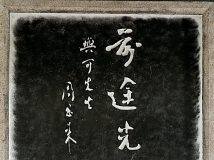 前途光
与可先生
周恩来